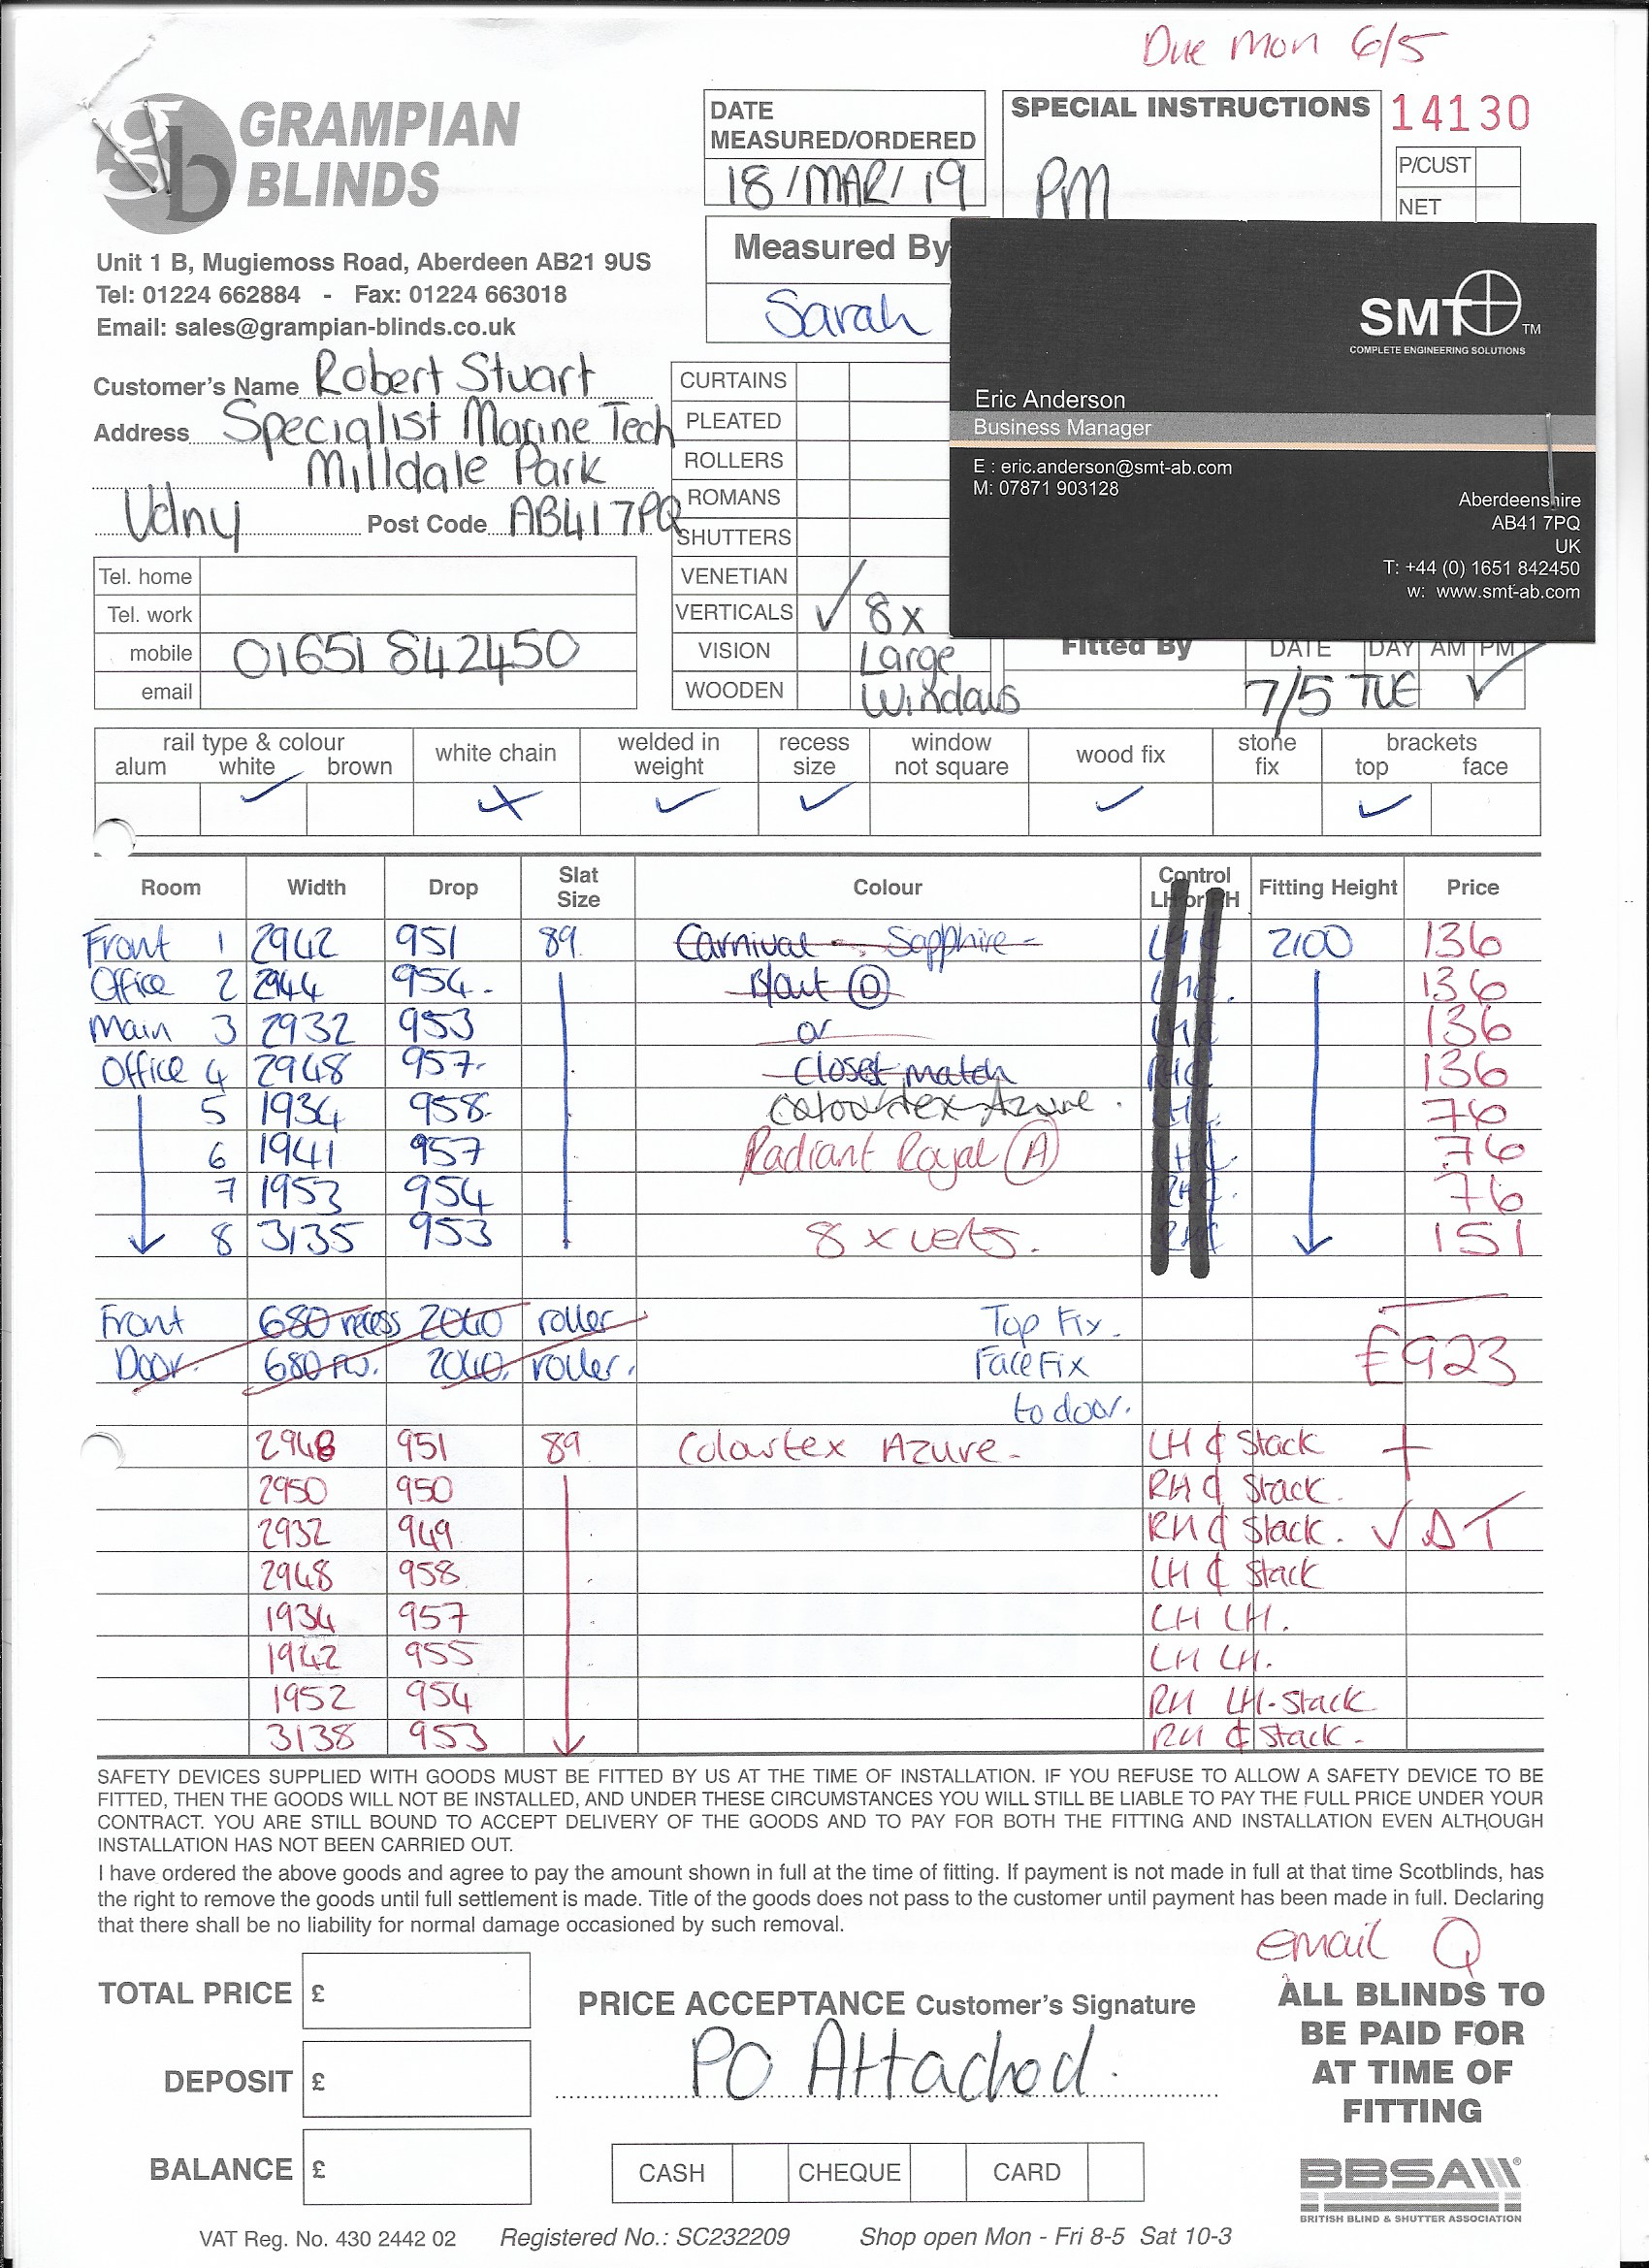 Due Mon 6/5
GRAMPIAN
BLINDS
Unit 1 B, Mugiemoss Road, Aberdeen AB21 9US
Tel: 01224 662884 - Fax: 01224 663018
Email: sales@grampian-blinds.co.uk
DATE
MEASURED/ORDERED
18/MAR/19
Measured By
Sarah
SPECIAL INSTRUCTIONS
PM
14130
P/CUST
NET
SMT TM
COMPLETE ENGINEERING SOLUTIONS
Eric Anderson
Business Manager
E : eric.anderson@smt-ab.com
M: 07871 903128
Aberdeenshire
AB41 7PQ
UK
T: +44 (0) 1651 842450
w: www.smt-ab.com
Customer's Name Robert Stuart
Address Specialist Marine Tech
Milldale Park
Udny Post Code AB41 7PQ
Tel. home
Tel. work
mobile 01651 842450
email
CURTAINS
PLEATED
ROLLERS
ROMANS
SHUTTERS
VENETIAN
VERTICALS ✓ 8x
VISION Large
WOODEN Windows
Fitted By DATE DAY AM PM
7/5 TUE ✓
rail type & colour white chain welded in weight recess size window not square wood fix stone fix brackets
alum white brown top face
Room Width Drop Slat Size Colour Control LH or RH Fitting Height Price
Front 1 2942 951 89 Carnival - Sapphire - LHC 2100 136
Office 2 2944 954 136
Main 3 2932 953 or 136
Office 4 2948 957 closest match 136
5 1934 958 Colourtex Azure 76
6 1941 957 Radiant Royal A 76
7 1953 954 RHC 76
8 3135 953 8 x verts. RHC 151
Front 680 recess 2040 roller Top Fix.
Door. 680 2040 roller. Face Fix £923
to door.
2948 951 89 Colourtex Azure - LH ¢ Stack
2950 950 RH ¢ Stack.
2932 949 RH ¢ Stack. ✓
2948 958 LH ¢ Stack
1934 957 LH LH.
1942 955 LH LH.
1952 954 RH LH-Stack
3138 953 RH ¢ Stack.
SAFETY DEVICES SUPPLIED WITH GOODS MUST BE FITTED BY US AT THE TIME OF INSTALLATION. IF YOU REFUSE TO ALLOW A SAFETY DEVICE TO BE
FITTED, THEN THE GOODS WILL NOT BE INSTALLED, AND UNDER THESE CIRCUMSTANCES YOU WILL STILL BE LIABLE TO PAY THE FULL PRICE UNDER YOUR
CONTRACT. YOU ARE STILL BOUND TO ACCEPT DELIVERY OF THE GOODS AND TO PAY FOR BOTH THE FITTING AND INSTALLATION EVEN ALTHOUGH
INSTALLATION HAS NOT BEEN CARRIED OUT.
I have ordered the above goods and agree to pay the amount shown in full at the time of fitting. If payment is not made in full at that time Scotblinds, has
the right to remove the goods until full settlement is made. Title of the goods does not pass to the customer until payment has been made in full. Declaring
that there shall be no liability for normal damage occasioned by such removal.
email Q
TOTAL PRICE £
DEPOSIT £
BALANCE £
PRICE ACCEPTANCE Customer's Signature
PO Attached.
CASH CHEQUE CARD
ALL BLINDS TO
BE PAID FOR
AT TIME OF
FITTING
BBSA
BRITISH BLIND & SHUTTER ASSOCIATION
VAT Reg. No. 430 2442 02 Registered No.: SC232209 Shop open Mon - Fri 8-5 Sat 10-3